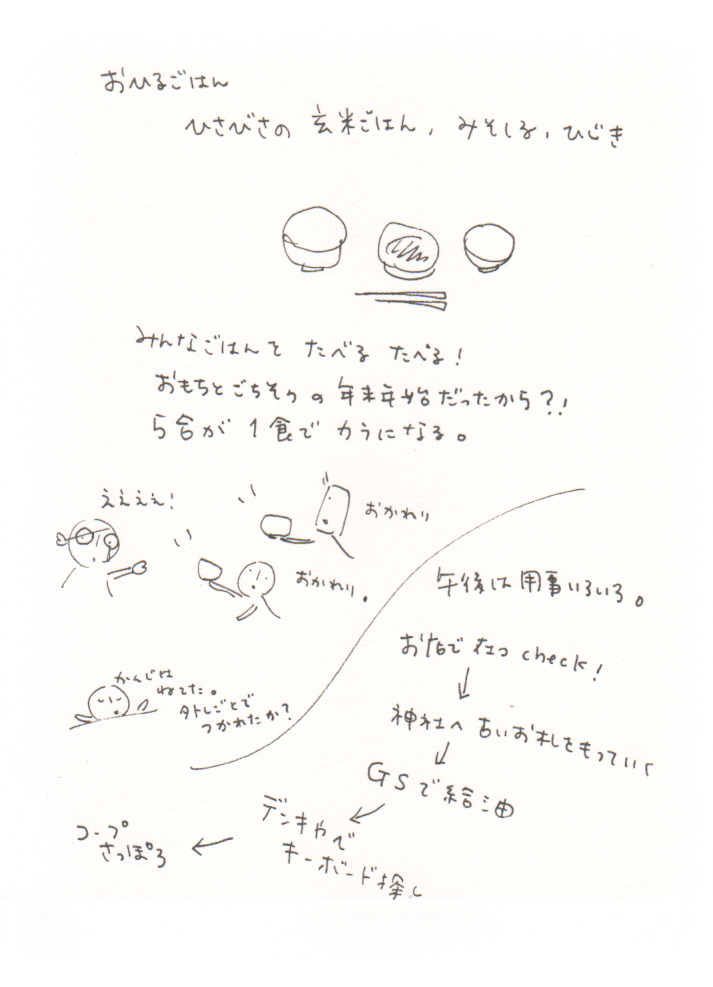 おひるごはん
ひさびさの 玄米ごはん、みそしる、ひじき
みんなごはんを たべる たべる!
おもちとごちそうの年末年始だったから?!
5合が 1食で カラになる。
ええええ!
おかわり
おかわり。
かんじは
ねてた。
外しごとで
つかれたか?
午後は 用事いろいろ。
お店で 在つ check!
↓
神社へ 古いお札をもっていく
↓
GSで給油
↓
デンキやで
キーボード探し
←
コープ
さっぽろ